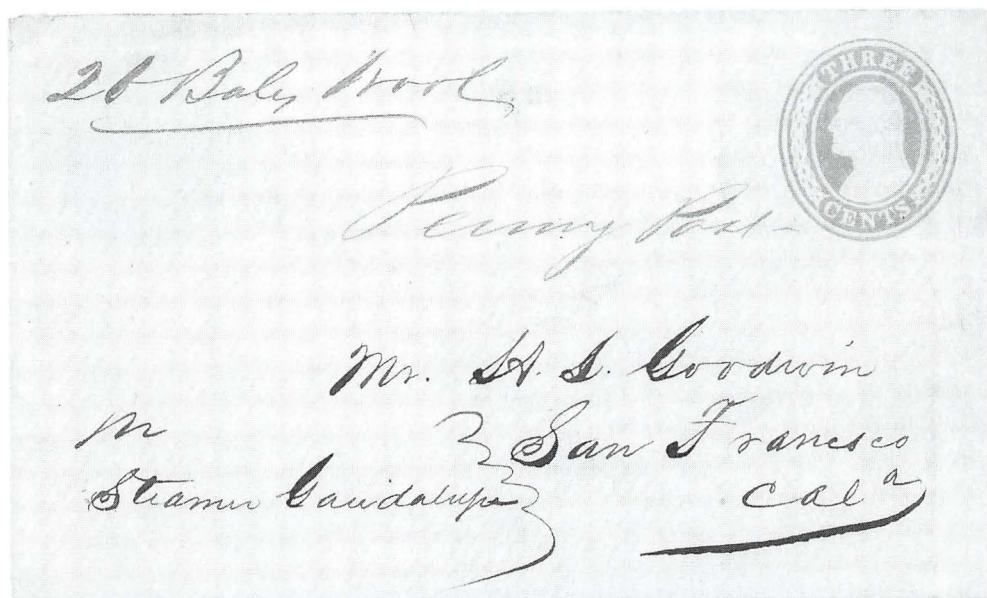 26 Bales Wool
THREE
CENTS
Penny Post
Mr. H. S. Goodwin
San Francisco
Cala
Pr
Steamer Gaudalupe